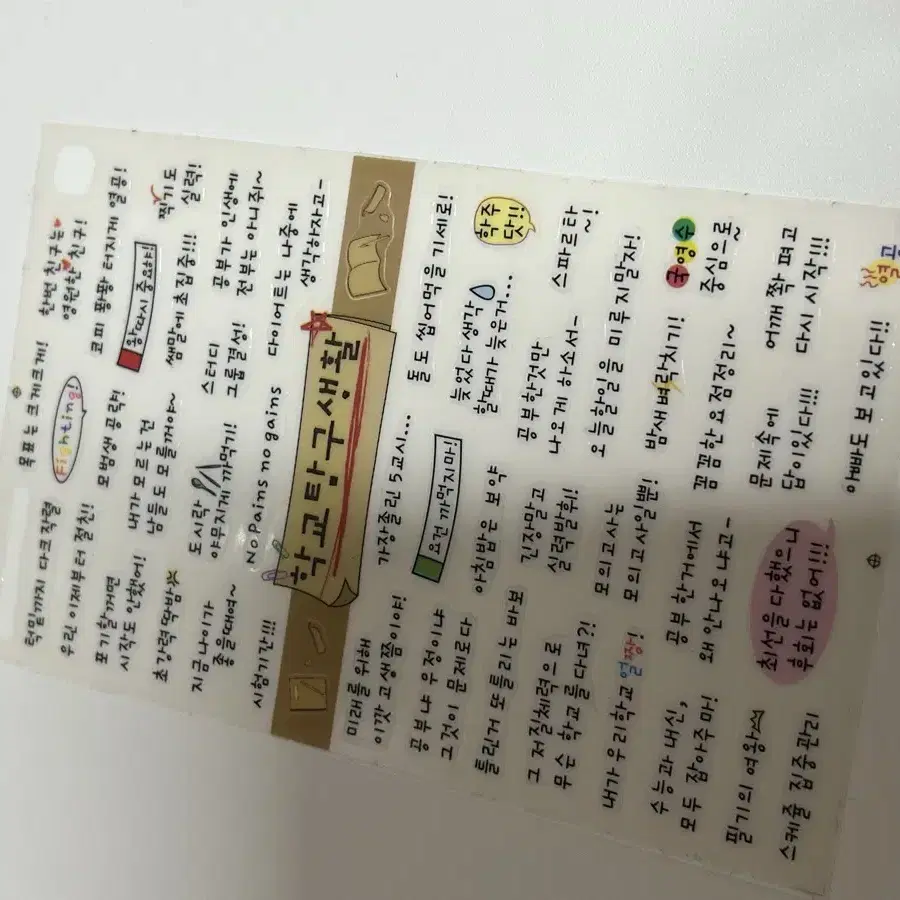 턱밑까지 다크작렬
목표는 크게크게!
한번 친구는
영원한 친구!
우린 이제부터 절친!
Fighting!
코피 팡팡 터지게 열공!
포기할꺼면
시작도 안했어!
모범생 공략!
왕따시 중요해!
초강력 딱밤
내가 모르는건
남들도 모를꺼야~
쌤말에 초집중!!!
찍기도
실력!
지금 나이가
좋을때여~
도시락
야무지게 까먹기!
스터디
그룹결성!
공부가 인생에
전부는 아니줘~
시험기간!!!
No Pains no gains
다이어트는 나중에
생각하자고~
학교탐구생활
미래를 위해
이깟 고생쯤이야!
가장졸린 5교시...
돌도 씹어먹을 기세로!
공부냐 우정이냐
그것이 문제로다
요건 까먹지마!
늦었다 생각
할때가 늦은거...
학주
닷!!
틀린거 또틀리는 바보
아침밥은 보약
공부한것만
나오게 하소서~
스파르타
~!
그 저질체력으로
무슨 학교를 다녀?!
긴장말고
실력발휘!
오늘할일을 미루지말자!
내가 우리학교 얼짱!
모의고사는
모의고사일뿐!
밤새 벼락치기!
국영수
중심으로~
수능과 내신,
모두 잡아주마!
공부한거에서
왜 안나오냐고~
꼼꼼한 요점정리~
필기의 여왕
최선을 다했으니
후회는 없어!!!
문제속에
답이있다!!!
어깨 쫙 펴고
다시 시작!!!
스케쥴 집중관리
아빠도 보고있다!!